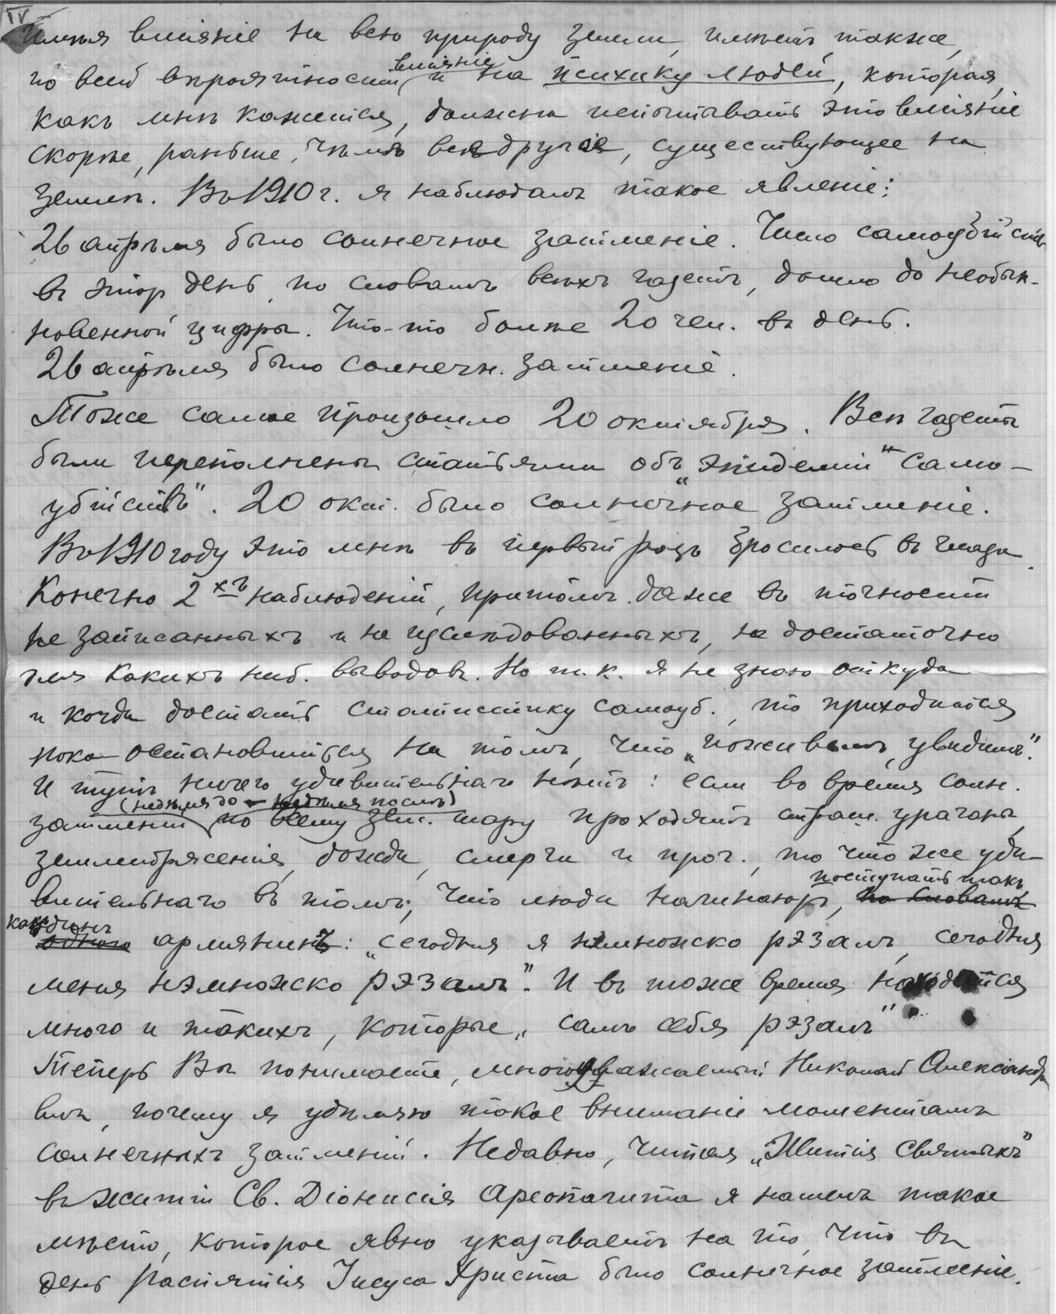 IV
имѣя вліяніе на всю природу земли, имѣетъ также,
по всей вѣроятности, вліяніе и на психику людей, которая,
какъ мнѣ кажется, должна испытывать это вліяніе
скорѣе, раньше, чѣмъ все другое, существующее на
землѣ. Въ 1910 г. я наблюдалъ такое явленіе:
26 апрѣля было солнечное затменіе. Число самоубійствъ
въ этор день, по словамъ всѣхъ газетъ, дошло до необык-
новенной цифры. Что-то болѣе 20 чел. въ день.
26 апрѣля было солнечн. затменіе.
Тоже самое произошло 20 октября. Всѣ газеты
были переполнены статьями объ эпидеміи "само-
убійствъ". 20 окт. было солнечное затменіе.
Въ 1910 году это мнѣ въ первый разъ бросилось въ глаза.
Конечно 2хъ наблюденій, притомъ даже въ точности
не записанныхъ и не изслѣдованныхъ, не достаточно
для какихъ ниб. выводовъ. Но т.к. я не знаю откуда
и когда достать статистику самоуб., то приходится
пока остановиться на томъ, что "поживемъ, увидимъ".
И тутъ ничего удивительнаго нѣтъ: если во время солн.
(недѣля до – недѣля послѣ)
затменій по всему зем. шару проходятъ страш. ураганы,
землетрясенія, дожди, смерчи и проч., то что же уди-
вительнаго въ томъ, что люди начинают поступать такъ,
по словамъ
какъ одинъ
одного армянинъ: "сегодня я нэмножко рэзалъ, сегодня
меня нэмножко рэзалъ". И въ тоже время находятся
много и такихъ, которые "самъ себя рэзалъ"
Теперь Вы понимаете, многоуважаемый Николай Александро-
вичъ, почему я удѣляю такое вниманіе моментамъ
солнечныхъ затменій. Недавно, читая "Житія Святыхъ"
въ житіи Св. Діонисія Ареопагита я нашелъ такое
мѣсто, которое явно указываетъ на то, что въ
день распятія Іисуса Христа было солнечное затменіе.